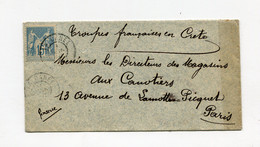 Troupes françaises en Crete
Messieurs les Directeurs des Magasins
Aux Canotiers
13 Avenue de Lamotte-Picquet
Paris
France